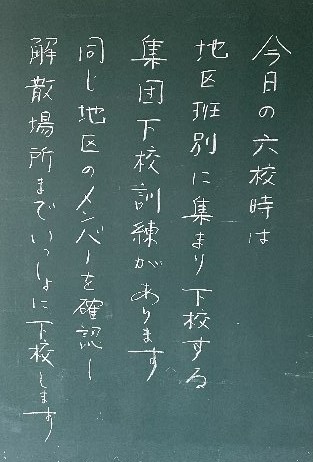 今日の六校時は
地区班別に集まり下校する
集団下校訓練があります
同じ地区のメンバーを確認し
解散場所までいっしょに下校します